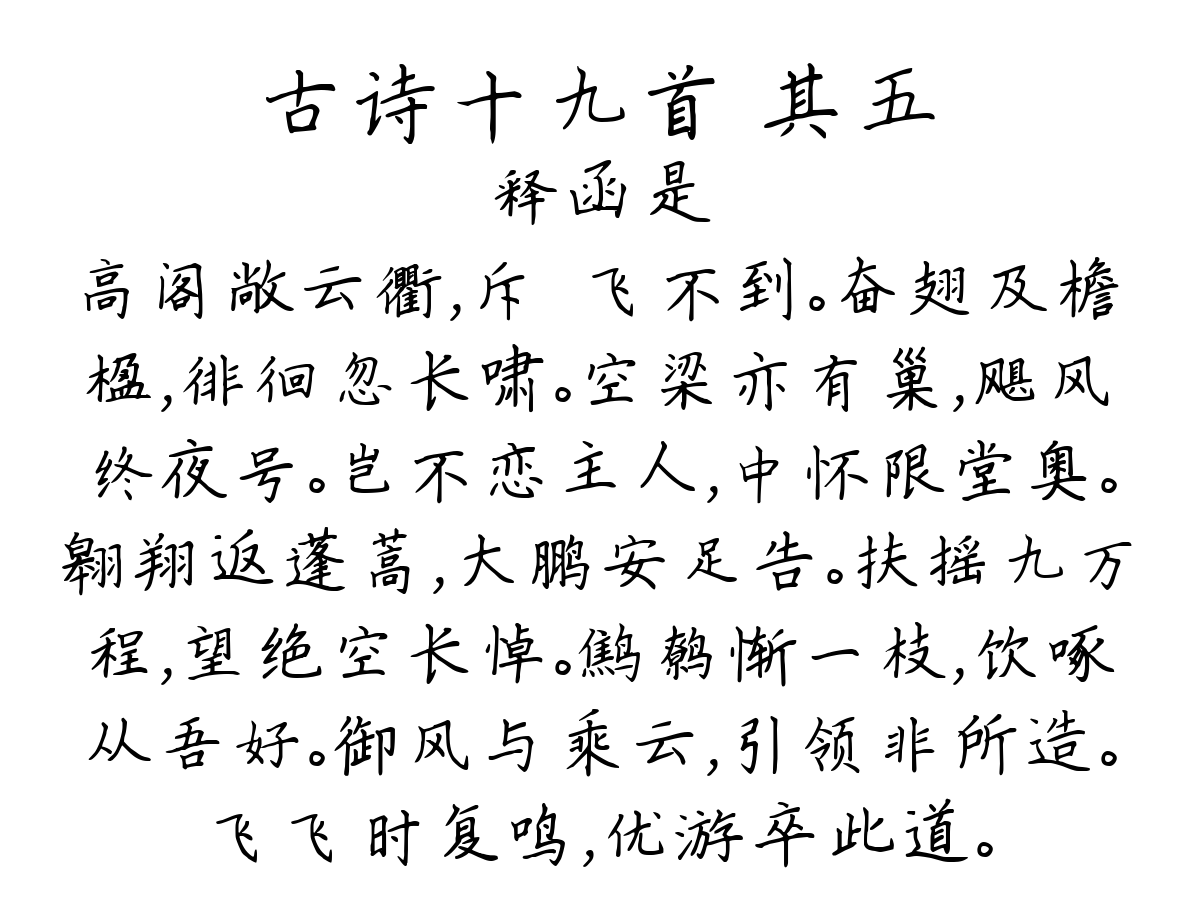 古诗十九首 其五
释函是
高阁敞云衢,斥 飞不到。奋翅及檐
楹,徘徊忽长啸。空梁亦有巢,飓风
终夜号。岂不恋主人,中怀限堂奥。
翱翔返蓬蒿,大鹏安足告。扶摇九万
程,望绝空长悼。鹪鹩惭一枝,饮啄
从吾好。御风与乘云,引领非所造。
飞飞时复鸣,优游卒此道。